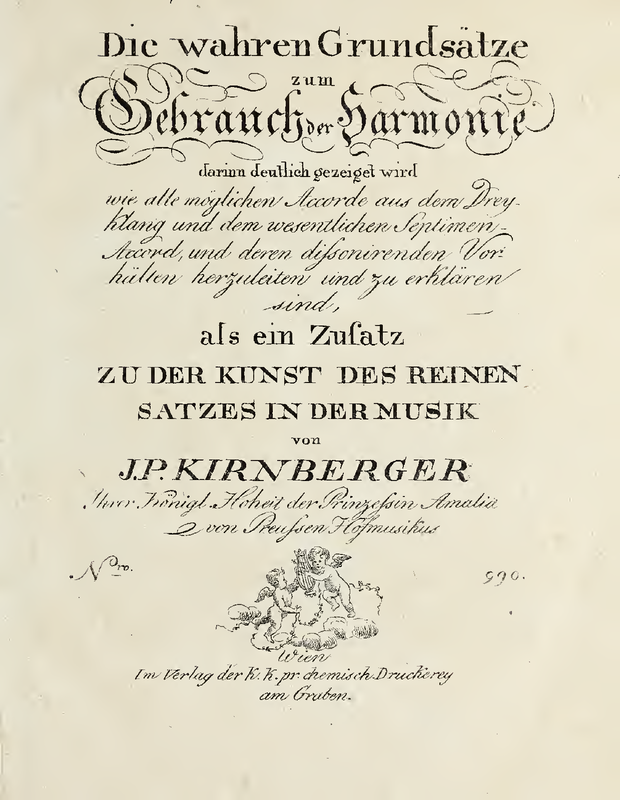 Die wahren Grundsätze
zum
Gebrauch der Harmonie
darinn deutlich gezeiget wird
wie alle möglichen Accorde aus dem Drey-
klang und dem wesentlichen Septimen-
Accord, und deren diſsonirenden Vor:
hälten herzuleiten und zu erklären
sind,
als ein Zuſatz
ZU DER KUNST DES REINEN
SATZES IN DER MUSIK
von
J.P. KIRNBERGER
Ihrer Königl. Hoheit der Prinzeſsin Amalia
von Preuſsen Hofmusikus
Nro. 990.
Wien
Im Verlag der K. K. pr. chemisch. Druckerey
am Graben.